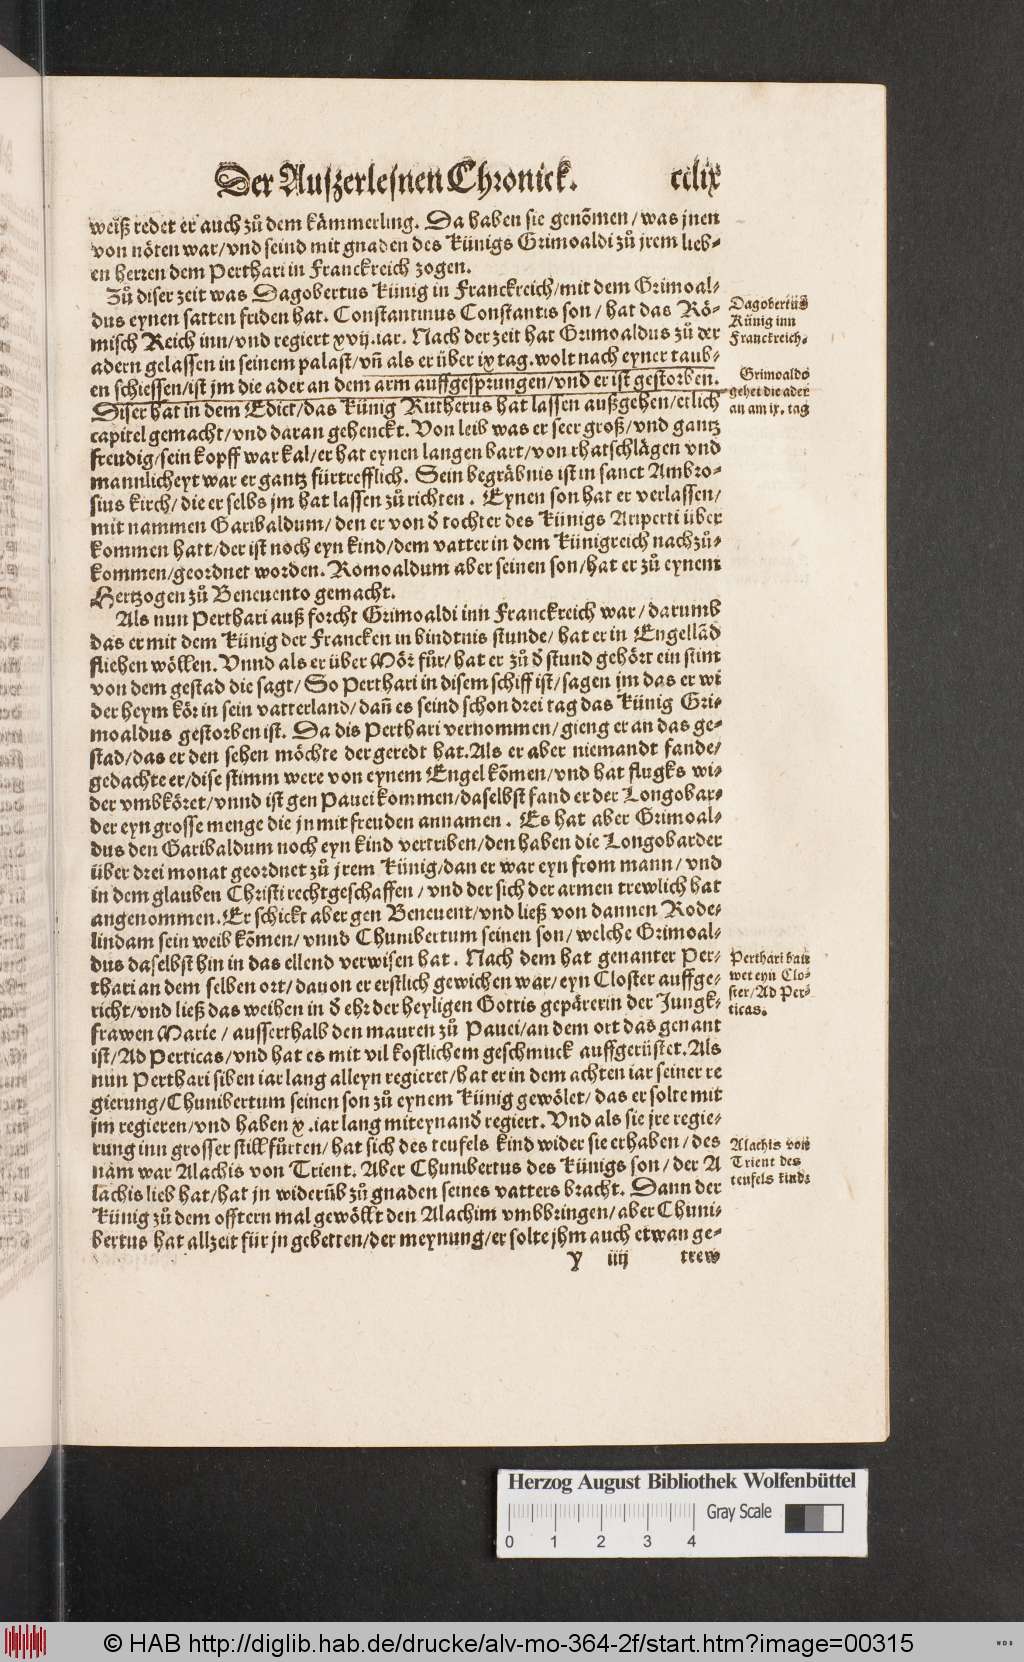 Der Auszerlesnen Chronick. cclix
weiß redet er auch zů dem kämmerling. Da haben sie genõmen/ was jnen
von nöten war/ vnd seind mit gnaden des Künigs Grimoaldi zů jrem lieb-
en herren dem Perthari in Franckreich zogen.
Zů diser zeit was Dagobertus Künig in Franckreich/ mit dem Grimoal-
dus eynen satten friden hat. Constantinus Constantis son/ hat das Rö-
misch Reich inn/ vnd regiert xvij. iar. Nach der zeit hat Grimoaldus zů der
adern gelassen in seinem palast/ vñ als er über ix tag. wolt nach eyner taub-
en schiessen/ ist jm die ader an dem arm auffgesprungen/ vnd er ist gestorben.
Diser hat in dem Edict/ das Künig Rutherus hat lassen außgehen/ etlich
capitel gemacht/ vnd daran gehenckt. Von leib was er seer groß/ vnd gantz
freudig/ sein kopff war kal/ er hat eynen langen bart/ von rhatschlägen vnd
mannlicheyt war er gantz fürtrefflich. Sein begräbnis ist in sanct Ambro-
sius kirch/ die er selbs jm hat lassen zůrichten. Eynen son hat er verlassen/
mit nammen Garibaldum/ den er von ð tochter des Künigs Ariperti über
kommen hatt/ der ist noch eyn kind/ dem vatter in dem Künigreich nachzů-
kommen/ geordnet worden. Romoaldum aber seinen son/ hat er zů eynem
Hertzogen zů Beneuento gemacht.
Als nun Perthari auß forcht Grimoaldi inn Franckreich war/ darumb
das er mit dem Künig der Francken in bindtnis stunde/ hat er in Engellãd
fliehen wöllen. Vnnd als er über Mör fůr/ hat er zů ð stund gehört ein stim
von dem gestad die sagt/ So Perthari in disem schiff ist/ sagen jm das er wi
der heym kör in sein vatterland/ dañ es seind schon drei tag das Künig Gri-
moaldus gestorben ist. Da dis Perthari vernommen/ gieng er an das ge-
stad/ das er den sehen möchte der geredt hat. Als er aber niemandt fande/
gedachte er/ dise stimm were von eynem Engel kõmen/ vnd hat flugks wi-
der vmbköret/ vnnd ist gen Pauei kommen/ daselbst fand er der Longobar-
der eyn grosse menge die jn mit freuden annamen. Es hat aber Grimoal-
dus den Garibaldum noch eyn kind vertriben/ den haben die Longobarder
über drei monat geordnet zů jrem Künig/ dan er war eyn from mann/ vnd
in dem glauben Christi rechtgeschaffen/ vnd der sich der armen trewlich hat
angenommen. Er schickt aber gen Beneuent/ vnd ließ von dannen Rode-
lindam sein weib kõmen/ vnnd Chunibertum seinen son/ welche Grimoal-
dus daselbst hin in das ellend verwisen hat. Nach dem hat genanter Per-
thari an dem selben ort/ dauon er erstlich gewichen war/ eyn Closter auffge-
richt/ vnd ließ das weihen in ð ehr der heyligen Gottis gepärerin der Jungk-
frawen Marie/ ausserthalb den mauren zů Pauei/ an dem ort das genant
ist/ Ad Perticas/ vnd hat es mit vil kostlichem geschmuck auffgerüstet. Als
nun Perthari siben iar lang alleyn regieret/ hat er in dem achten iar seiner re
gierung/ Chunibertum seinen son zů eynem Künig gewölet/ das er solte mit
jm regieren/ vnd haben x. iar lang miteynanð regiert. Vnd als sie jre regie-
rung inn grosser still fůrten/ hat sich des teufels kind wider sie erhaben/ des
nam war Alachis von Trient. Aber Chunibertus des Künigs son/ der A
lachis lieb hat/ hat jn widerũb zů gnaden seines vatters bracht. Dann der
Künig zů dem offtern mal gewöllt den Alachim vmbbringen/ aber Chuni-
bertus hat allzeit für jn gebetten/ der meynung/ er solte jhm auch etwan ge-
Y iiij trew
Dagobertus
Künig inn
Franckreich.
Grimoaldo
gehet die ader
an am ix. tag
Perthari baw
wet eyn Clo-
ster/ Ad Per-
ticas.
Alachis von
Trient des
teufels kind.
Herzog August Bibliothek Wolfenbüttel
0 1 2 3 4 Gray Scale
© HAB http://diglib.hab.de/drucke/alv-mo-364-2f/start.htm?image=00315